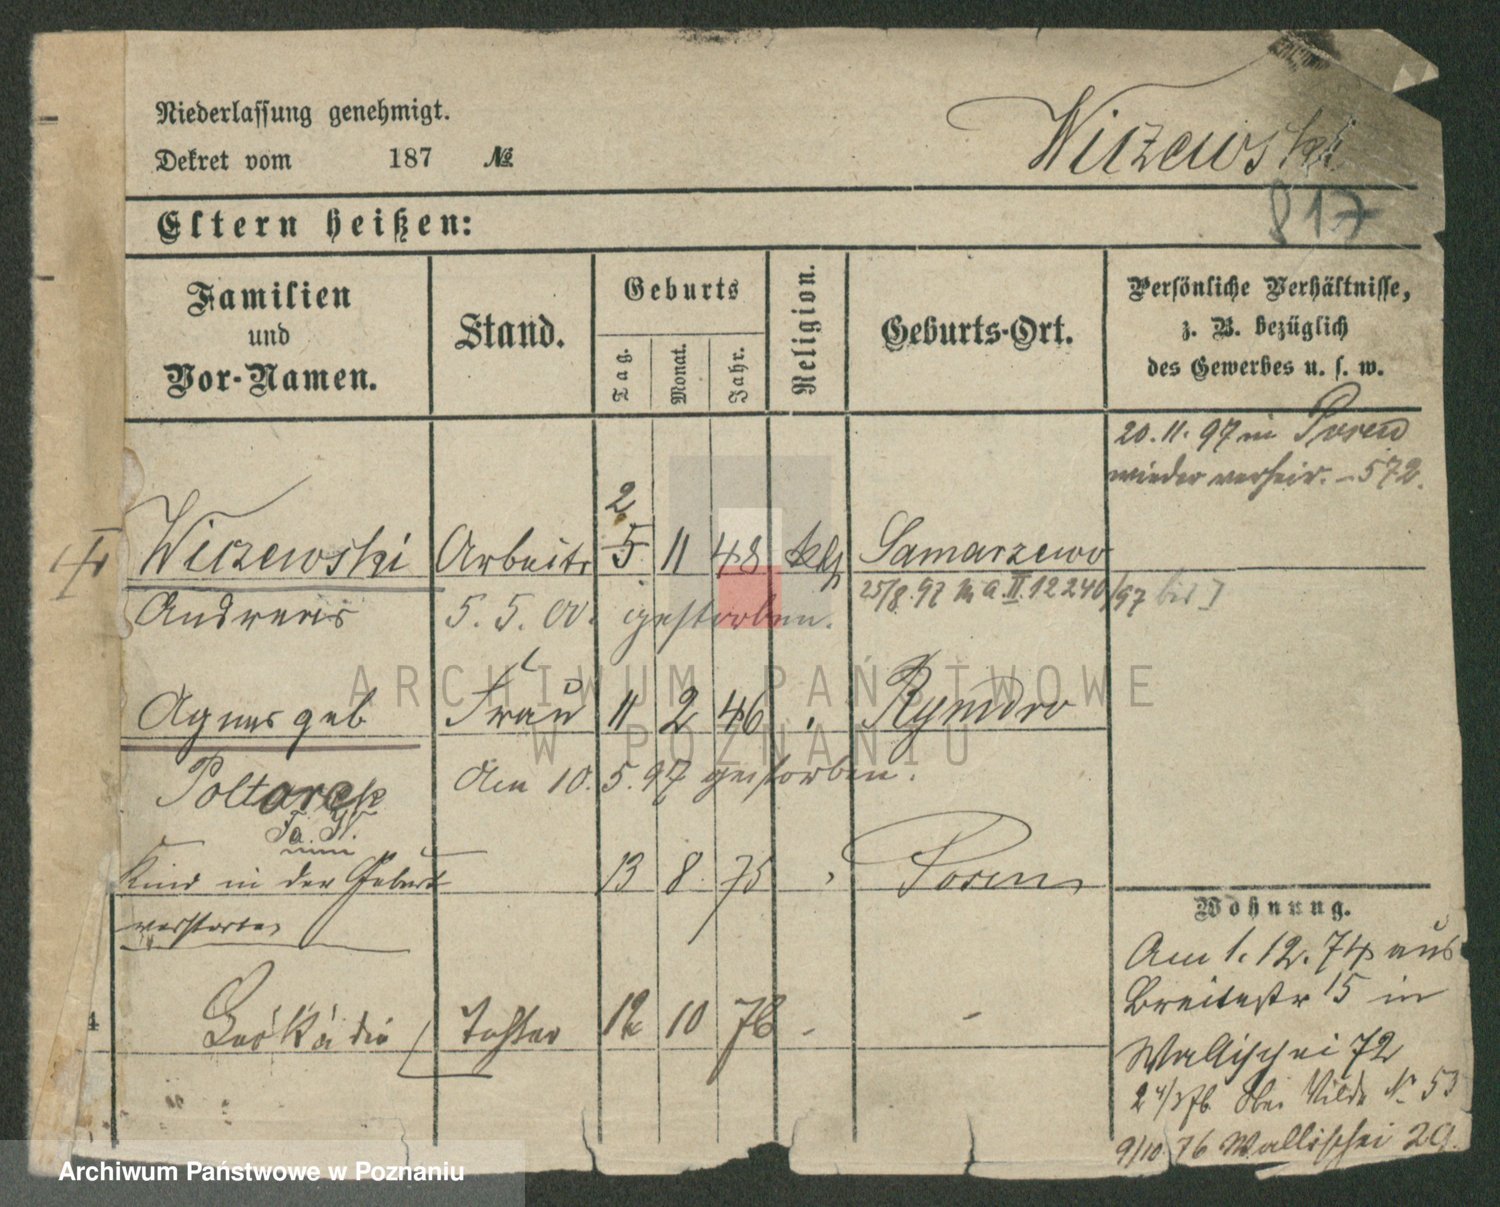 Niederlassung genehmigt.
Dekret vom 187 №
Wiczewski
817
Eltern heißen:
Familien und Vor-Namen.
Stand.
Geburts
Tag. Monat. Jahr.
Religion.
Geburts-Ort.
Persönliche Verhältnisse,
z. B. bezüglich
des Gewerbes u. s. w.
20.11.97 in Posen
wieder verheir. - 572.
2
Wiczewski Arbeitr 5 11 48 kth Samarzewo
25/8.97 II 12240/97
Andreas 5. 5. 00. gestorben.
Agnes geb Frau 11 2 46 Rymdro
Poltarek am 10. 5. 97 gestorben.
Kind in der Geburt 13 8 75 Posen
verstorben
Leokadie Tochter 12 10 76 -
Wohnung.
Am 1. 12. 74 aus
Breitestr 15 in
Wallischei 72
24/3 76 Ober Wilda № 53
9/10 76 Wallischei 29.
ARCHIWUM PAŃSTWOWE
W POZNANIU
Archiwum Państwowe w Poznaniu